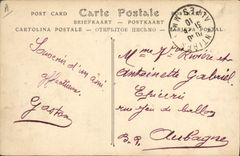 POST CARD Carte Postale
BRIEFKAART POSTKARTE
CARTOLINA POSTALE ОТКРЫТОЕ ПИСЬМО
Souvenir d'un ami
affectueux
Gaston
Mme Vve Rivière et
Antoinette Gabriel
Epicerie
rue Jeu de Ballon
B. R.
Aubagne